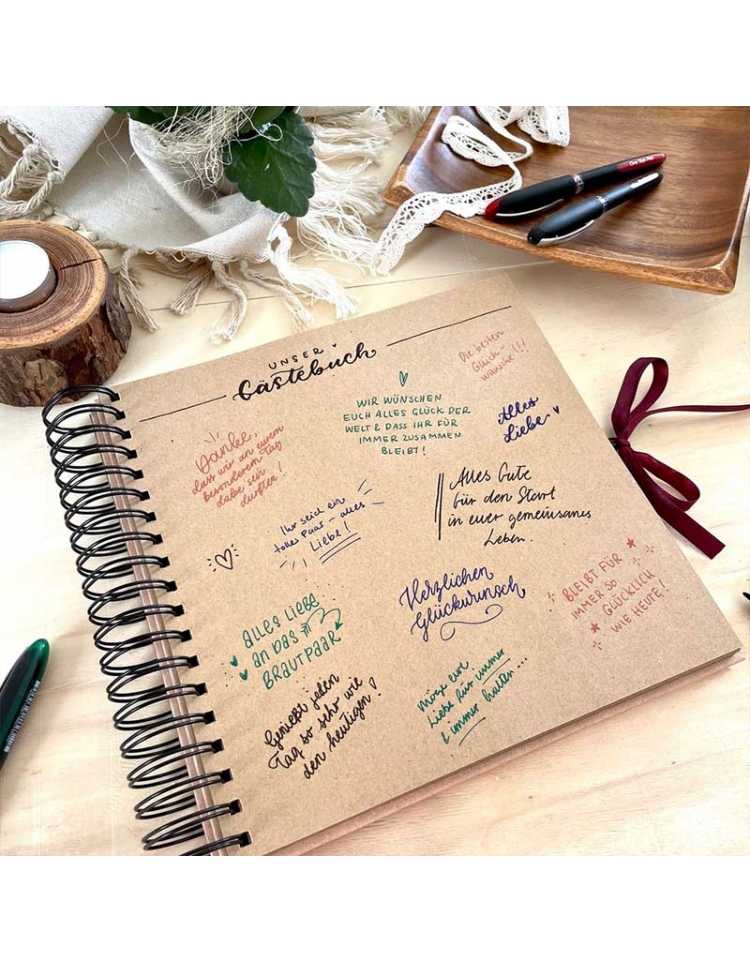 UNSER
Gästebuch
Die besten
Glück-
wünsche!!!
WIR WÜNSCHEN
EUCH ALLES GLÜCK DER
WELT & DASS IHR FÜR
IMMER ZUSAMMEN
BLEIBT!
Alles
Liebe
Danke,
dass wir an eurem
besonderen Tag
dabei sein
durften!
Alles Gute
für den Start
in euer gemeinsames
Leben.
Ihr seid ein
tolles Paar - alles
Liebe!
Herzlichen
Glückwunsch
BLEIBT FÜR
IMMER SO
GLÜCKLICH
WIE HEUTE!
ALLES LIEBE
AN DAS
BRAUTPAAR
Genießt jeden
Tag so sehr wie
den heutigen!
möge eure
Liebe für immer
& immer halten...